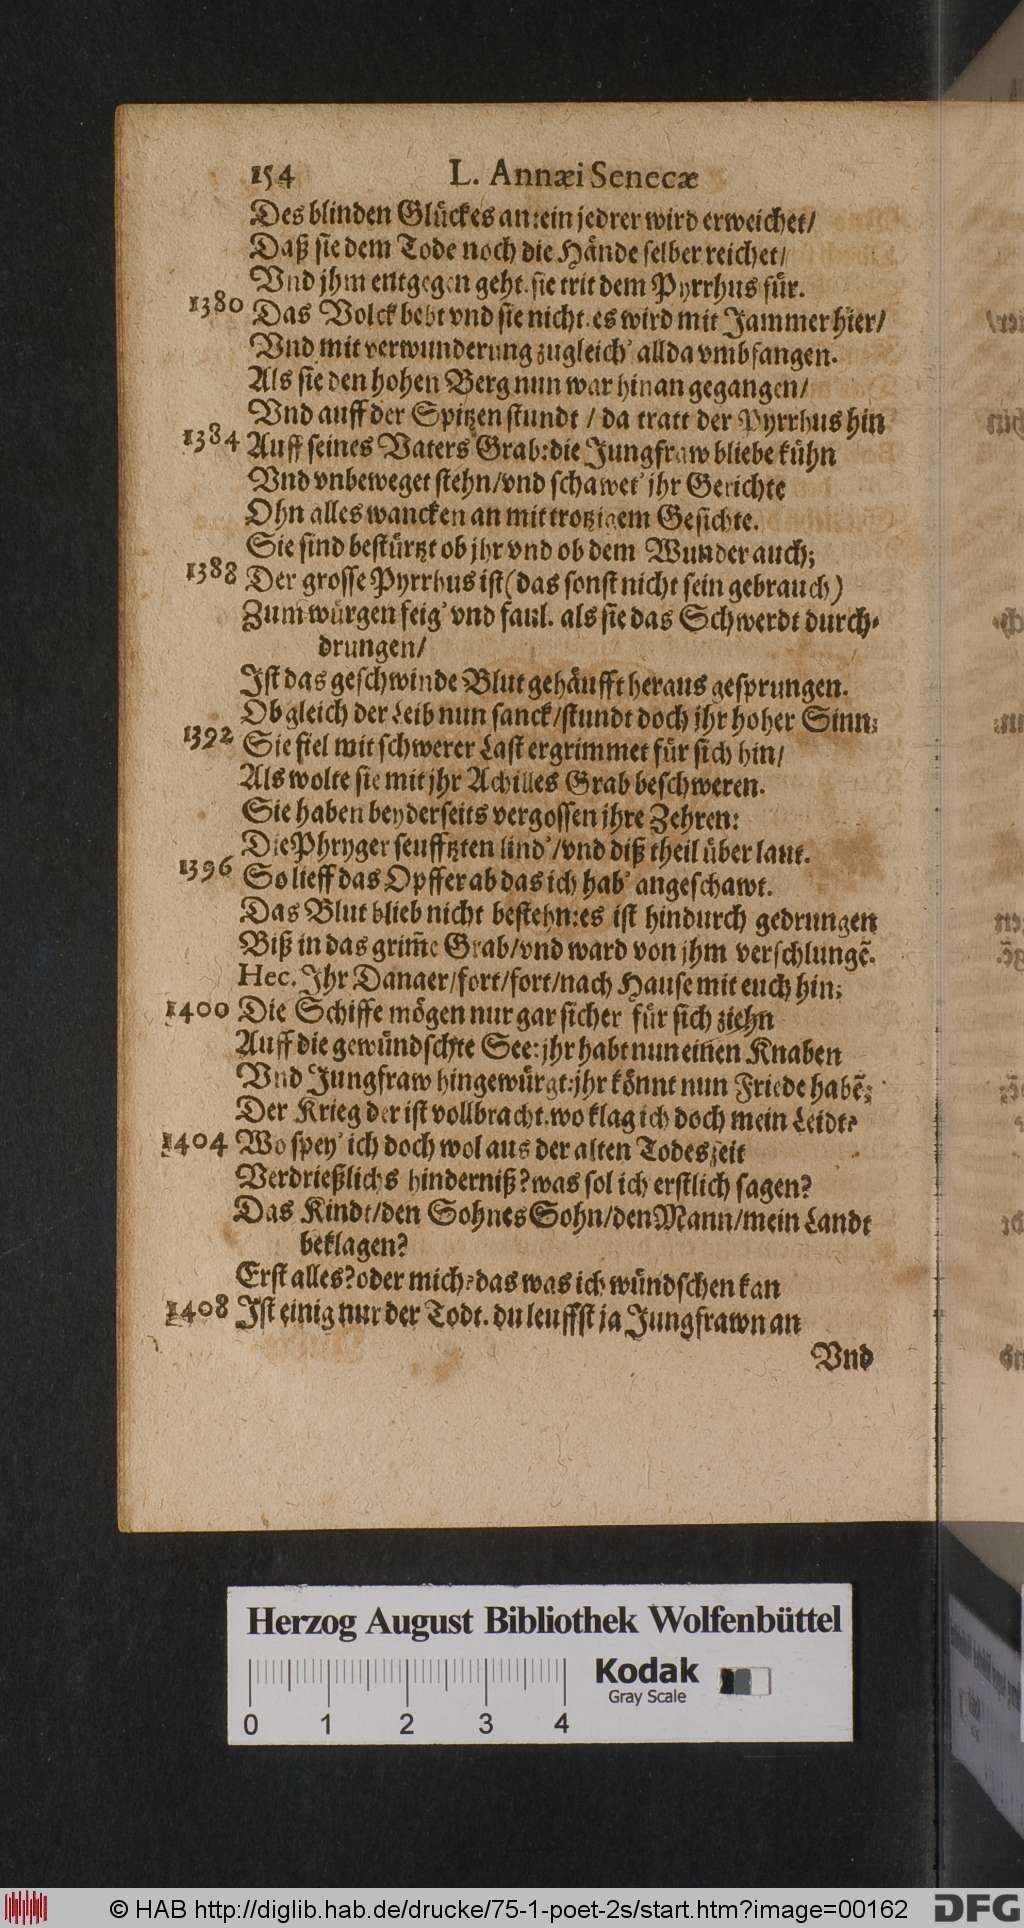 154 L. Annæi Senecæ
Des blinden Glückes an: ein jedrer wird erweichet/
Daß sie dem Tode noch die Hände selber reichet/
Vnd jhm entgegen geht. sie trit dem Pyrrhus für.
1380 Das Volck bebt vnd sie nicht. es wird mit Jammer hier/
Vnd mit verwunderung zugleich' allda vmbfangen.
Als sie den hohen Berg nun war hinan gegangen/
Vnd auff der Spitzen stundt / da tratt der Pyrrhus hin
1384 Auff seines Vaters Grab: die Jungfraw bliebe kühn
Vnd vnbeweget stehn/vnd schawet' jhr Gerichte
Ohn alles wancken an mit trotzigem Gesichte.
Sie sind bestürtzt ob jhr vnd ob dem Wunder auch;
1388 Der grosse Pyrrhus ist (das sonst nicht sein gebrauch)
Zum würgen feig' vnd faul. als sie das Schwerdt durch-
drungen/
Ist das geschwinde Blut gehäufft heraus gesprungen.
Ob gleich der Leib nun sanck/stundt doch jhr hoher Sinn;
1392 Sie fiel mit schwerer Last ergrimmet für sich hin/
Als wolte sie mit jhr Achilles Grab beschweren.
Sie haben beyderseits vergossen jhre Zehren:
Die Phryger seufftzten lind'/vnd diß theil über laut.
1396 So lieff das Opffer ab das ich hab' angeschawt.
Das Blut blieb nicht bestehn: es ist hindurch gedrungen
Biß in das grim̃e Grab/vnd ward von jhm verschlungẽ.
Hec. Ihr Danaer/fort/fort/nach Hause mit euch hin;
1400 Die Schiffe mögen nur gar sicher für sich ziehn
Auff die gewündschte See: jhr habt nun einen Knaben
Vnd Jungfraw hingewürgt: jhr könnt nun Friede habẽ;
Der Krieg der ist vollbracht. wo klag ich doch mein Leidt?
1404 Wo spey' ich doch wol aus der alten Todeszeit
Verdrießlichs hinderniß? was sol ich erstlich sagen?
Das Kindt/den Sohnes Sohn/den Mann/mein Landt
beklagen?
Erst alles? oder mich? das was ich wündschen kan
1408 Ist einig nur der Todt. du leuffst ja Jungfrawn an
Vnd
Herzog August Bibliothek Wolfenbüttel
Kodak
Gray Scale
0 1 2 3 4
© HAB http://diglib.hab.de/drucke/75-1-poet-2s/start.htm?image=00162
DFG